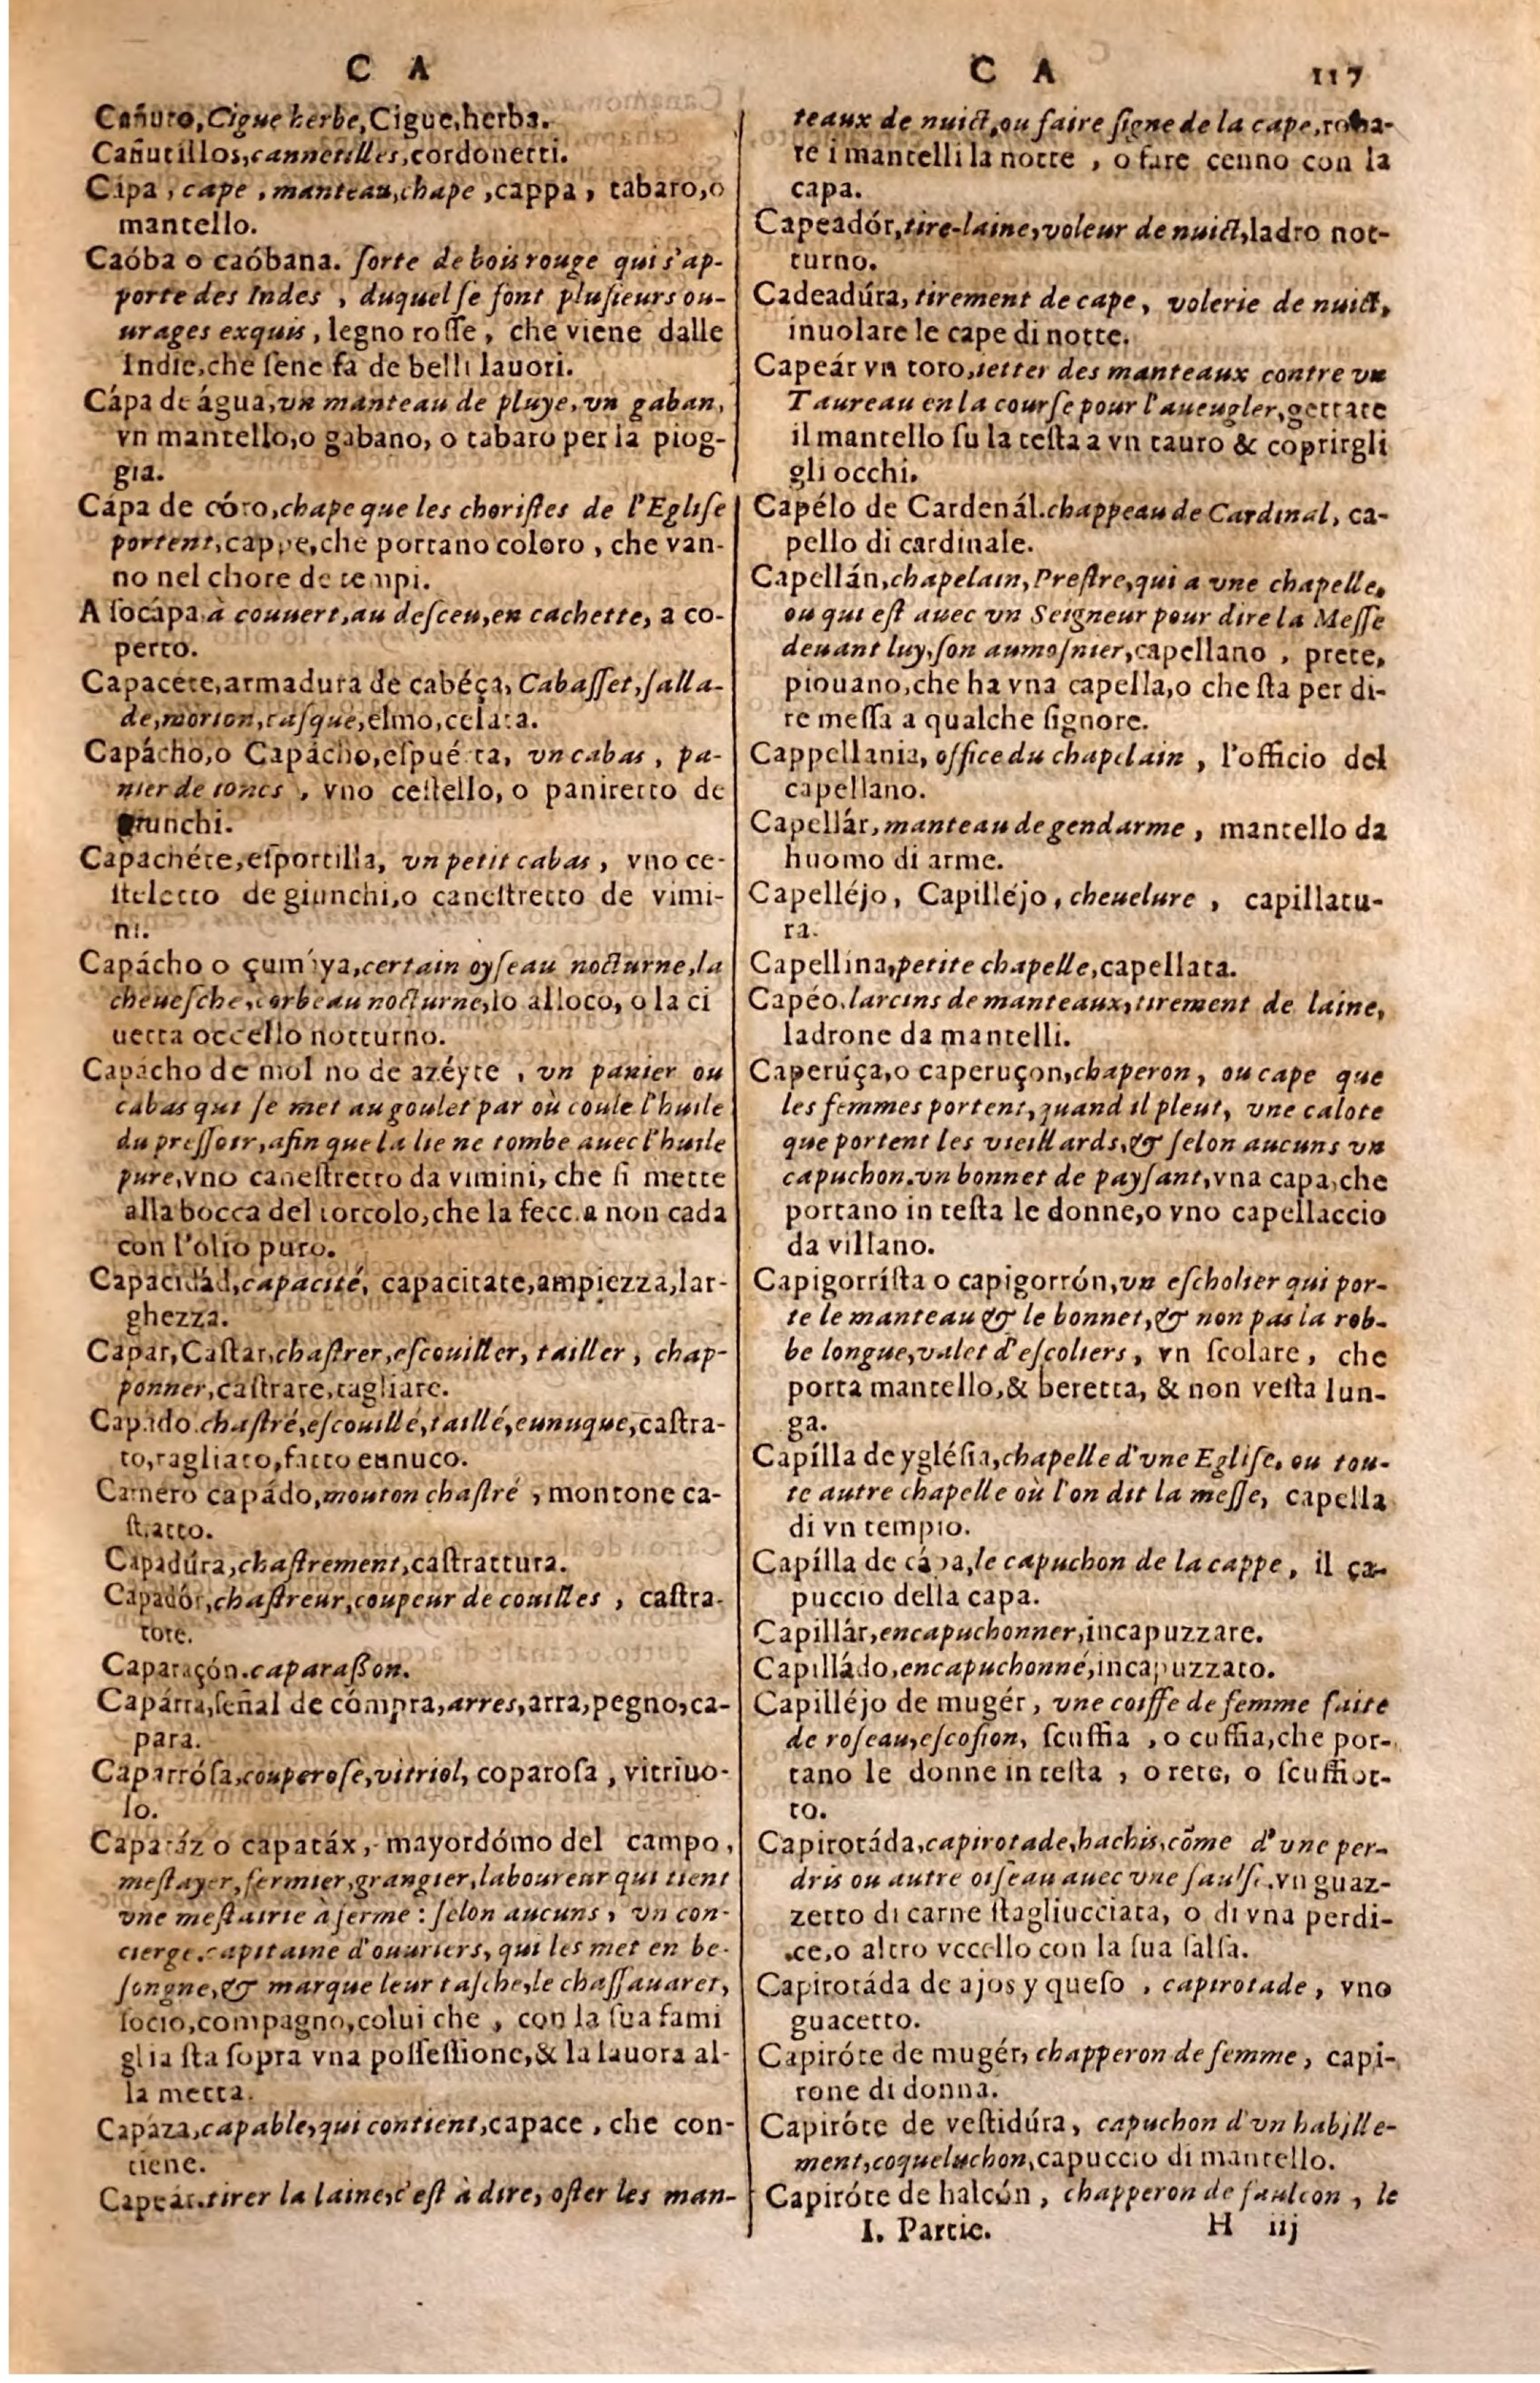 C A
Cañuto, Cigue herbe, Cigue, herba.
Cañutillos, cannetilles, cordonetti.
Cápa, cape, manteau, chape, cappa, tabaro, o
mantello.
Caóba o caóbana. ſorte de bois rouge qui s'ap-
porte des Indes, duquel ſe font pluſieurs ou-
urages exquis, legno roſſe, che viene dalle
Indie, che ſene fà de belli lauori.
Cápa de água, vn manteau de pluye, vn gaban,
vn mantello, o gabano, o tabaro per la piog-
gia.
Cápa de córo, chape que les choriſtes de l'Egliſe
portent, cappe, che portano coloro, che van-
no nel chore de tempi.
A ſocápa à couuert, au deſceu, en cachette, a co-
perto.
Capacéte, armadura de cabéça, Cabaſſet, ſalla-
de, morion, caſque, elmo, celata.
Capácho, o Capácho, eſpuérta, vn cabas, pa-
nier de ioncs, vno ceſtello, o paniretto de
giunchi.
Capachéte, eſportilla, vn petit cabas, vno ce-
ſteletto de giunchi, o caneſtretto de vimi-
ni.
Capácho o çumáya, certain oyſeau nocturne, la
cheueſche, corbeau nocturne, lo alloco, o la ci
uetta occello notturno.
Capácho de molino de azéyte, vn panier ou
cabas qui ſe met au goulet par où coule l'huile
du preſſoir, afin que la lie ne tombe auec l'huile
pure, vno caneſtretto da vimini, che ſi mette
alla bocca del torcolo, che la feccia non cada
con l'olio puro.
Capacidád, capacité, capacitate, ampiezza, lar-
ghezza.
Capar, Caſtar, chaſtrer, eſcouiller, tailler, chap-
ponner, caſtrare, tagliare.
Capado. chaſtré, eſcouillé, taillé, eunuque, caſtra-
to, tagliato, fatto eunuco.
Carnero capádo, mouton chaſtré, montone ca-
ſtratto.
Capadúra, chaſtrement, caſtrattura.
Capadór, chaſtreur, coupeur de couilles, caſtra-
tore.
Caparaçón. caparaßon.
Capárra, ſeñal de cómpra, arres, arra, pegno, ca-
para.
Caparróſa, couperoſe, vitriol, coparoſa, vitriuo-
lo.
Capatáz o capatáx, mayordómo del campo,
meſtayer, fermier, grangier, laboureur qui tient
vne meſtairie à ferme: ſelon aucuns, vn con-
cierge. capitaine d'ouuriers, qui les met en be-
ſongne, & marque leur taſche, le chaſſauaret,
ſocio, compagno, colui che, con la ſua fami
glia ſta ſopra vna poſſeſſione, & la lauora al-
la metta.
Capáza, capable, qui contient, capace, che con-
tiene.
Capeár. tirer la laine, c'eſt à dire, oſter les man-
C A 117
teaux de nuict, ou faire ſigne de la cape, roba-
re i mantelli la notte, o fare cenno con la
capa.
Capeadór, tire-laine, voleur de nuict, ladro not-
turno.
Cadeadúra, tirement de cape, volerie de nuict,
inuolare le cape di notte.
Capeár vn toro, ietter des manteaux contre vn
Taureau en la courſe pour l'aueugler, gettare
il mantello ſu la teſta a vn tauro & coprirgli
gli occhi.
Capélo de Cardenál. chappeau de Cardinal, ca-
pello di cardinale.
Capellán, chapelain, Preſtre, qui a vne chapelle,
ou qui eſt auec vn Seigneur pour dire la Meſſe
deuant luy, ſon aumoſnier, capellano, prete,
piouano, che ha vna capella, o che ſta per di-
re meſſa a qualche ſignore.
Cappellania, office du chapelain, l'officio del
capellano.
Capellár, manteau de gendarme, mantello da
huomo di arme.
Capelléjo, Capilléjo, cheuelure, capillatu-
ra.
Capellina, petite chapelle, capellata.
Capéo. larcins de manteaux, tirement de laine,
ladrone da mantelli.
Caperúça, o caperuçon, chaperon, ou cape que
les femmes portent, quand il pleut, vne calote
que portent les vieillards, & ſelon aucuns vn
capuchon. vn bonnet de payſant, vna capa, che
portano in teſta le donne, o vno capellaccio
da villano.
Capigorríſta o capigorrón, vn eſcholier qui por-
te le manteau & le bonnet, & non pas la rob-
be longue, valet d'eſcoliers, vn ſcolare, che
porta mantello, & beretta, & non veſta lun-
ga.
Capílla de ygléſia, chapelle d'vne Egliſe, ou tou-
te autre chapelle où l'on dit la meſſe, capella
di vn tempio.
Capílla de cápa, le capuchon de la cappe, il ça-
puccio della capa.
Capillár, encapuchonner, incapuzzare.
Capilládo, encapuchonné, incapuzzato.
Capilléjo de mugér, vne coiffe de femme faite
de roſeau, eſcofion, ſcuffia, o cuffia, che por-
tano le donne in teſta, o rete, o ſcuffiot-
to.
Capirotáda, capirotade, hachis, cõme d'vne per-
dris ou autre oiſeau auec vne ſaulſe. vn guaz-
zetto di carne ſtagliucciata, o di vna perdi-
ce, o altro vccello con la ſua ſalſa.
Capirotáda de ajos y queſo, capirotade, vno
guacetto.
Capiróte de mugér, chapperon de femme, capi-
rone di donna.
Capiróte de veſtidúra, capuchon d'vn habille-
ment, coqueluchon, capuccio di mantello.
Capiróte de halcón, chapperon de faulcon, le
I. Partie. H iij